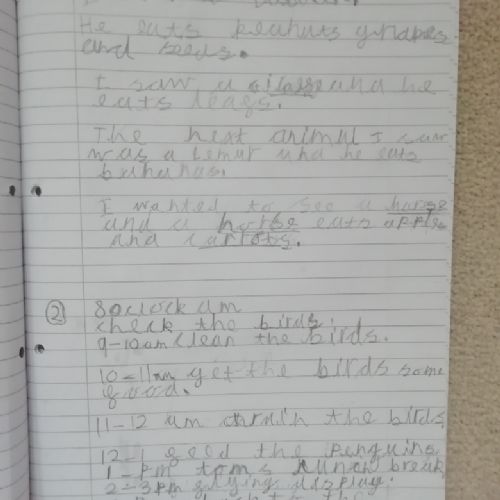 He eats peanuts grapes
and seeds.
I saw a and he
eats leafs.
The next animal I saw
was a lemur and he eats
bananas.
I wanted to see a horse
and a horse eats apples
and carrots.
2 8 oclock am
check the birds.
9-10am clean the birds.
10-11am get the birds some
food.
11-12 am the birds
12-1 feed the penguins
1- pm toms lunch break
2-3pm flying display.